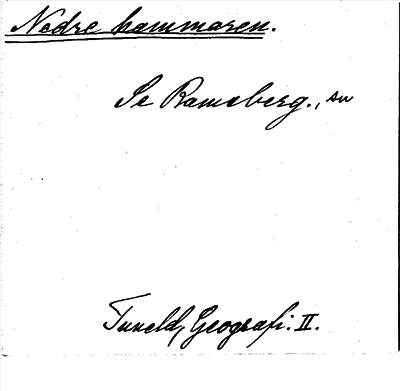 Nedre hammaren.
Se Ramsberg., sn
Tuneld, Geografi. II.